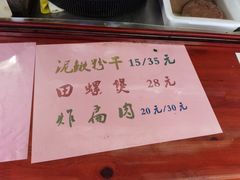 泥鳅粉干 15/35元
田螺煲 28元
炸扁肉 20元/30元